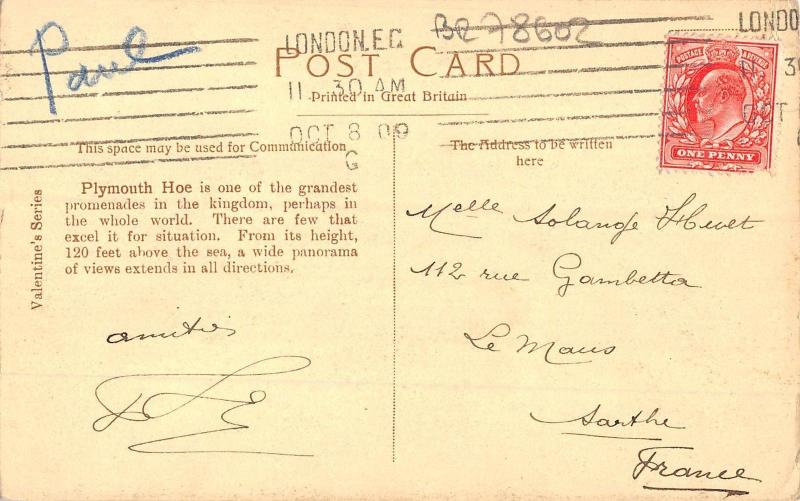 Paul
BR78602
LONDON.E.C
11 30 AM
OCT 8 09
G
LONDO
30
OCT
POST CARD
Printed in Great Britain
POSTAGE & REVENUE
ONE PENNY
This space may be used for Communication
The Address to be written
here
Valentine's Series
Plymouth Hoe is one of the grandest
promenades in the kingdom, perhaps in
the whole world. There are few that
excel it for situation. From its height,
120 feet above the sea, a wide panorama
of views extends in all directions.
amitiés
Melle Solange Huet
112 rue Gambetta
Le Mans
Sarthe
France